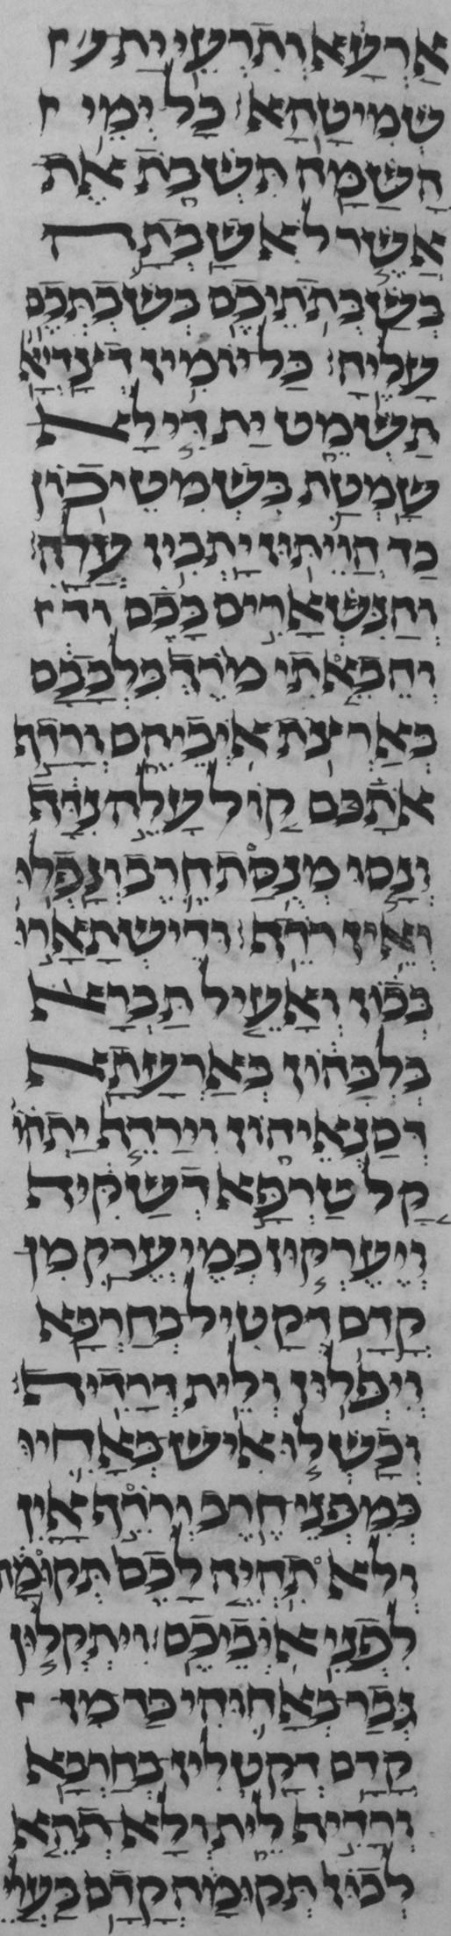 אַרְעָא וְתִרְעֵי יָת
שְׁמִיטָּהָא׃ כָּל יְמֵי
הָשַּׁמָּה תִּשְׁבֹּת אֵת
אֲשֶׁר לֹא שָׁבְתָה
בְּשַׁבְּתֹתֵיכֶם בְּשִׁבְתְּכֶם
עָלֶיהָ׃ כָּל יוֹמִין דִּצְדִיאָ
תַּשְׁמֵט יָת דִּי לָא
שְׁמָטַת בִּשְׁמִטֵּיכוֹן
כַּד הֲוֵיתוּן יָתְבִין עֲלַהּ׃
וְהַנִּשְׁאָרִים בָּכֶם
וְהֵבֵאתִי מֹרֶךְ בִּלְבָבָם
בְּאַרְצֹת אֹיְבֵיהֶם וְרָדַף
אֹתָם קוֹל עָלֶה נִדָּף
וְנָסוּ מְנֻסַת חֶרֶב וְנָפְלוּ
וְאֵין רֹדֵף׃ וּדְיִשְׁתָּאֲרוּ
בְּכוֹן וְאָעֵיל תַּבְרָא
בְּלִבְּהוֹן בְּאַרְעָתָא
דְּסַנְאֵיהוֹן וְיִרְדֹּף יָתְהוֹ
קָל טַרְפָּא דְּשָׁקִיף
וְיֵעְרְקוּן כְּמֵיעֲרַק מִן
קֳדָם דְּקָטוֹל בְּחַרְבָּא
וְיִפְּלוּן וְלֵית דְּרָדֵיף׃
וְכָשְׁלוּ אִישׁ בְּאָחִיו
כְּמִפְּנֵי חֶרֶב וְרֹדֵף אָיִן
וְלֹא תִהְיֶה לָכֶם תְּקוּמָה
לִפְנֵי אֹיְבֵיכֶם׃ וְיִתַּקְלוּן
גְּבַר בְּאַחוּהִי כַּד מִן
קֳדָם דְּקָטְלִין בְּחַרְבָּא
וְרָדֵיף לֵית וְלָא תְהֵא
לְכוֹן תְּקוּמָה קֳדָם בַּעֲלֵי